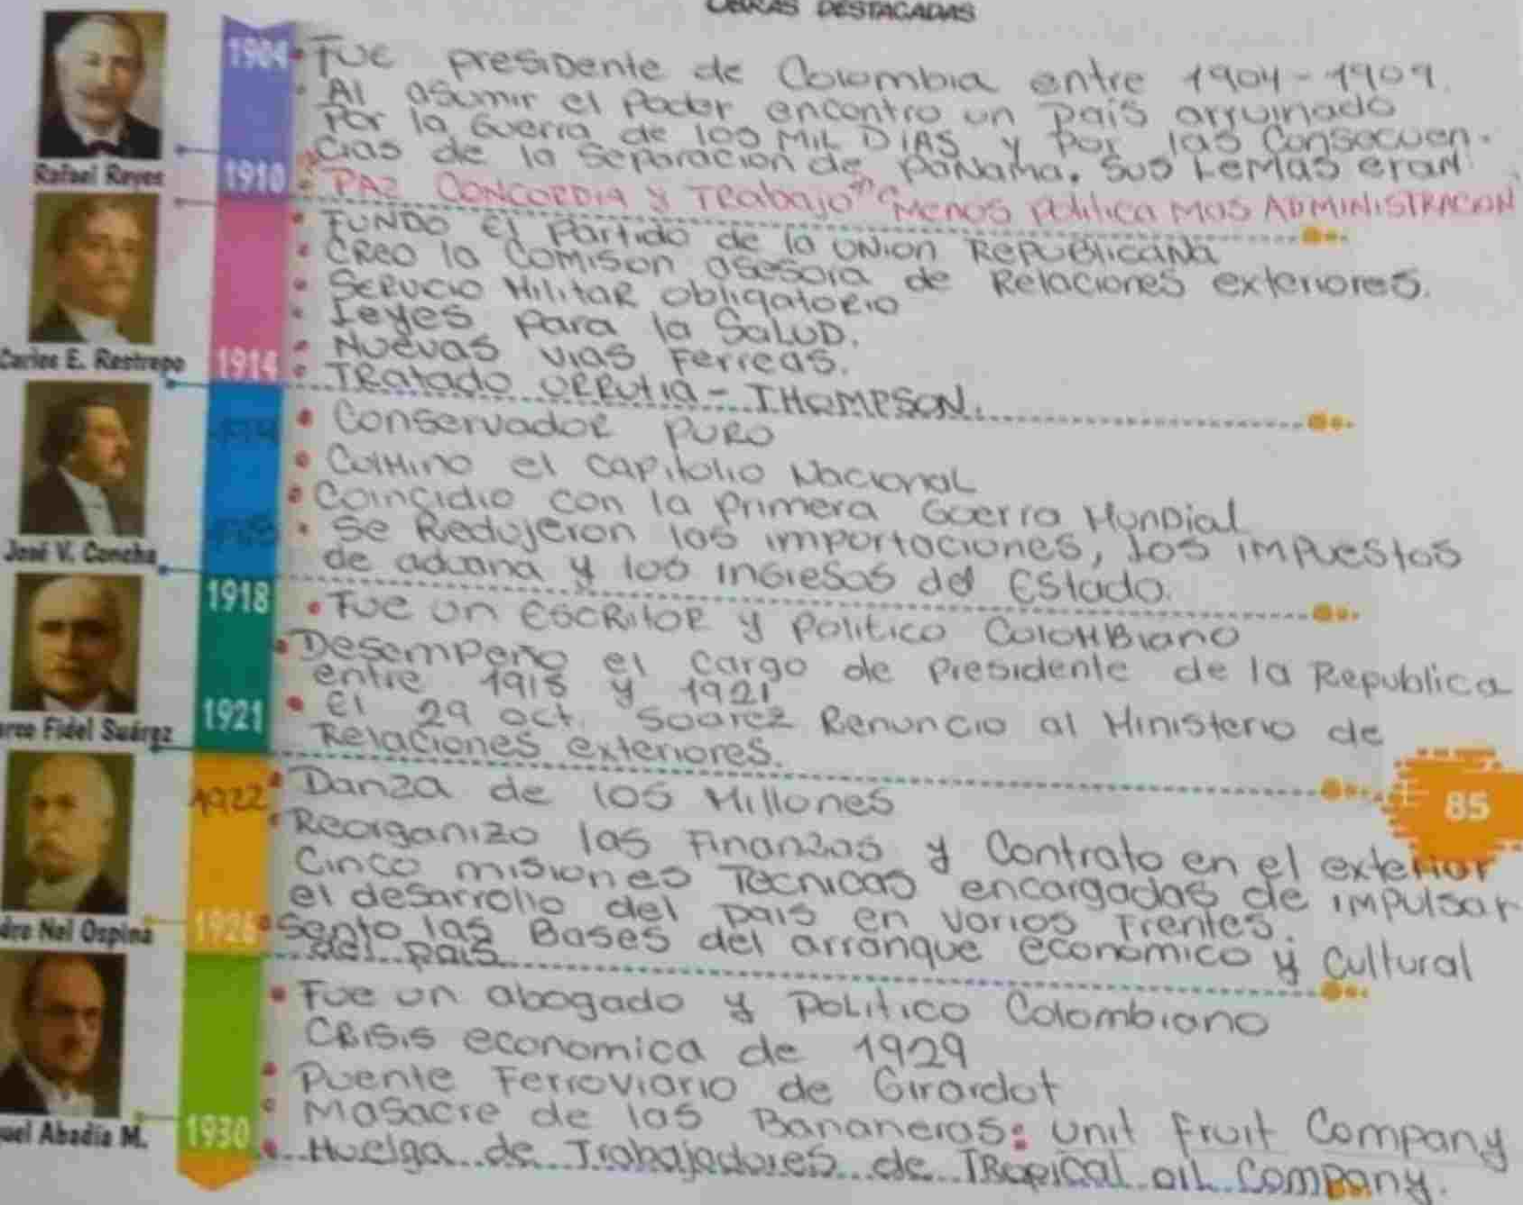 OBRAS DESTACADAS
1904
• Fue presidente de Colombia entre 1904-1909.
• Al asumir el Poder encontro un País arruinado
Por la Guerra de los MIL DIAS y Por las Consecuen-
cias de la separacion de PaNama. Sus Lemas eran
Rafael Reyes
1910
: PAZ CONCORDIA y TRabajo" "Menos Politica MAS ADMINISTRACION
• FUNDO El Partido de la UNion RePUBlicaNa
• CReo la Comison asesora de Relaciones exteriores.
• SERVCIO MilitaR obligatoRio
• Leyes Para la SaLUD.
• Nuevas vias Ferreas.
Carlos E. Restrepo
1914
• TRatado URRutia - THOMPSON.
• ConservadoR PURO
• CulMino el capitolio Nacional
• Coincidio con la Primera Guerra MunDial
• Se Redujeron las importaciones, los imPuestos
de aduana y los inGresos del Estado.
José V. Concha
1918
• Fue un EscRitoR y Politico ColoMBiano
• Desempeño el cargo de Presidente de la Republica
entre 1918 y 1921
1921
• El 29 oct. Suarez Renuncio al Ministerio de
Relaciones exteriores.
arco Fidel Suárez
1922
• Danza de los Millones
85
• Reorganizo las Finanzas y Contrato en el exterior
Cinco misiones Tecnicas encargadas de impulsar
el desarrollo del pais en varios Frentes.
dro Nel Ospina
1926
• Sento las Bases del arranque economico y Cultural
del pais
• Fue un abogado y Politico Colombiano
CRisis economica de 1929
• Puente Ferroviario de Girardot
• Masacre de las Bananeras: Unit Fruit Company
uel Abadía M.
1930
• Huelga de Trabajadores de TRopical oiL Company.